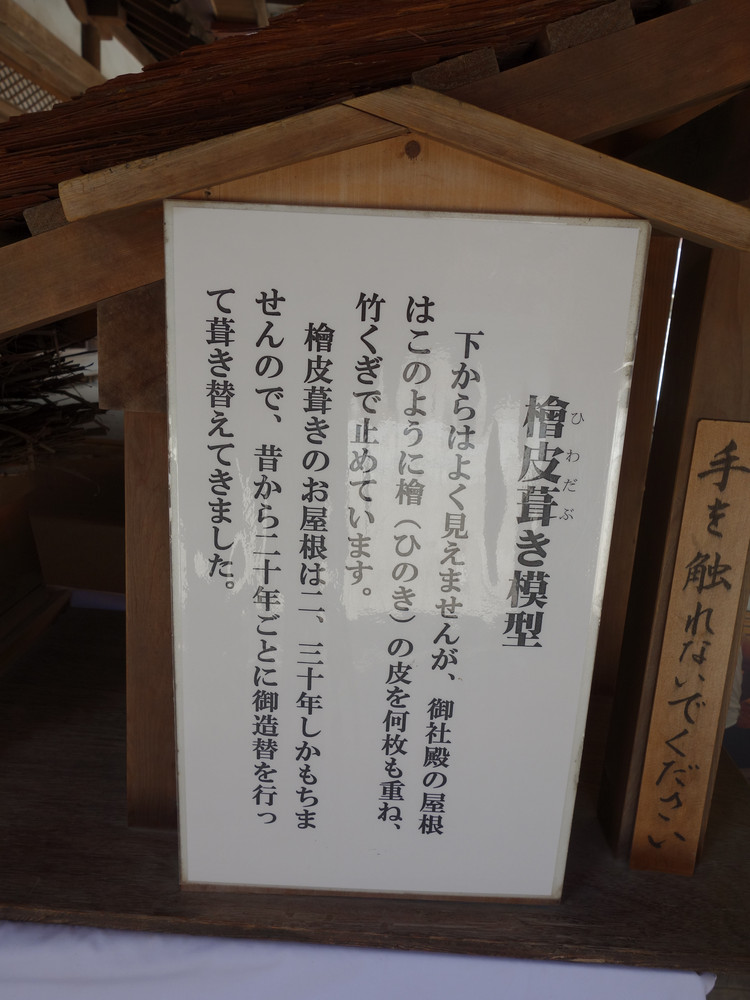 檜皮葺き模型
ひわだぶ
下からはよく見えませんが、御社殿の屋根
はこのように檜（ひのき）の皮を何枚も重ね、
竹くぎで止めています。
檜皮葺きのお屋根は二、三十年しかもちま
せんので、昔から二十年ごとに御造替を行っ
て葺き替えてきました。
手を触れないでください